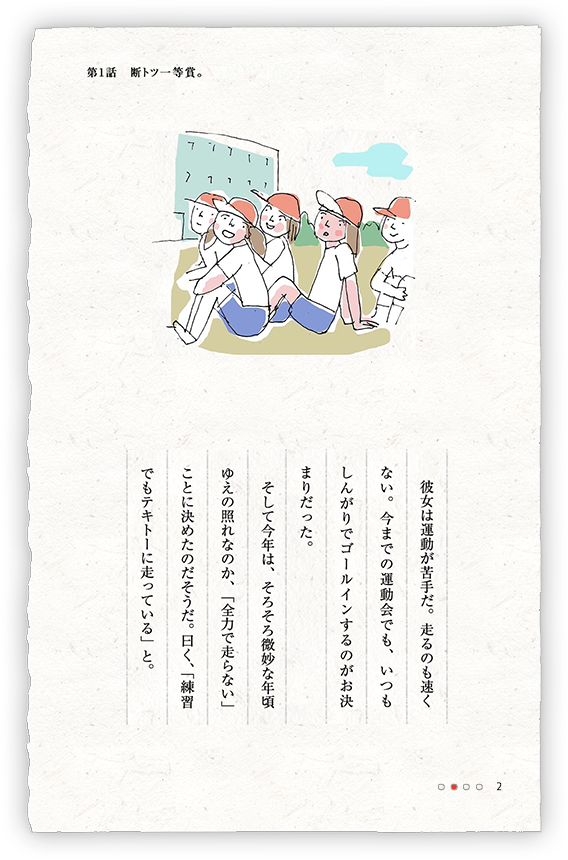 第1話　断トツ一等賞。
彼女は運動が苦手だ。走るのも速く
ない。今までの運動会でも、いつも
しんがりでゴールインするのがお決
まりだった。
そして今年は、そろそろ微妙な年頃
ゆえの照れなのか、「全力で走らない」
ことに決めたのだそうだ。曰く、「練習
でもテキトーに走っている」と。
2